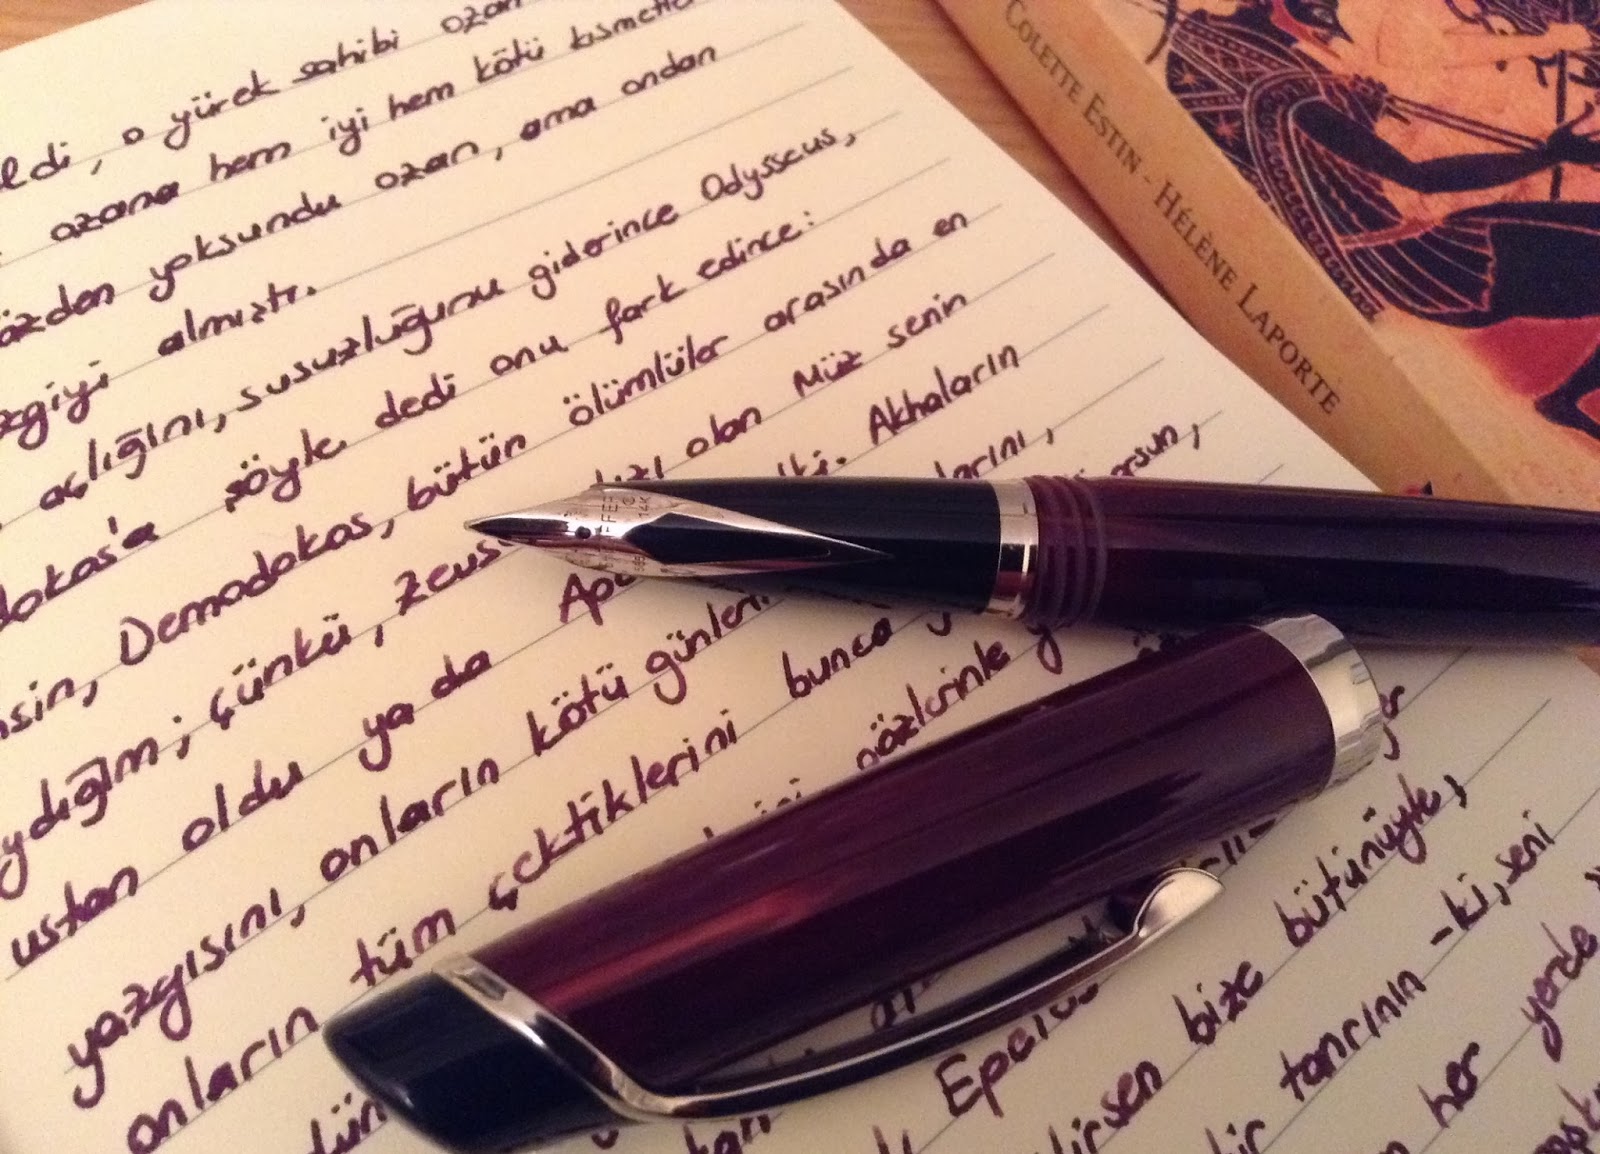 ldi, o yürek sahibi ozan
ozana hem iyi hem kötü kısmeti
özden yoksundu ozan, ama ondan
zgiyi almıştı.
açlığını, susuzluğunu giderince Odysseus,
dokos'a şöyle dedi onu fark edince:
nsin, Demodokos, bütün ölümlüler arasında en
ydığım; çünkü, Zeus kızı olan Müz senin
ustan oldu ya da Apo Akhaların
yazgısını, onların kötü günleri larını,
onların tüm çektiklerini bunca orsun,
gözlerinle
bütünüyle,
Epeios
irsen bize -ki, seni
bir tanrının
her yerde
COLETTE ESTIN - HÉLÈNE LAPORTE
14K
585